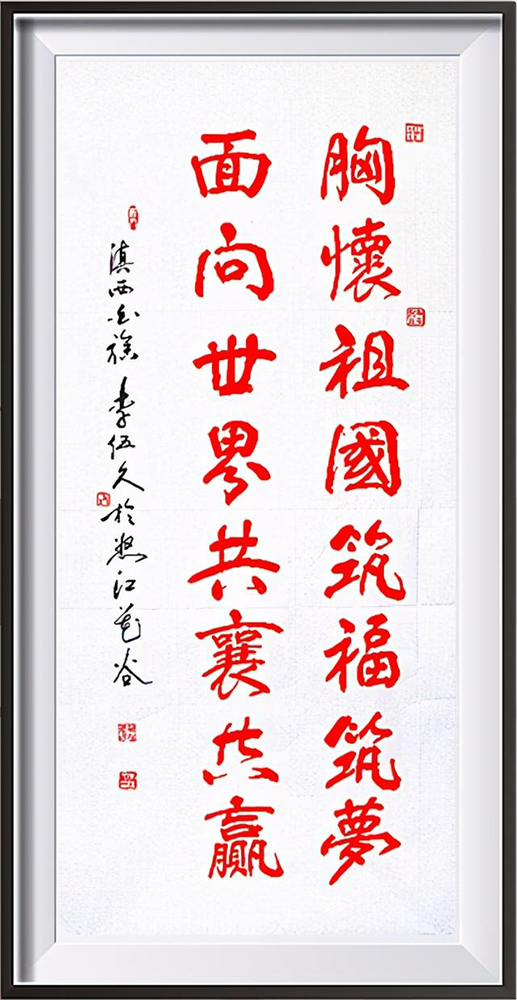 胸懷祖國筑福筑夢
面向世界共襄共贏
滇西白族 李伍久於怒江花谷